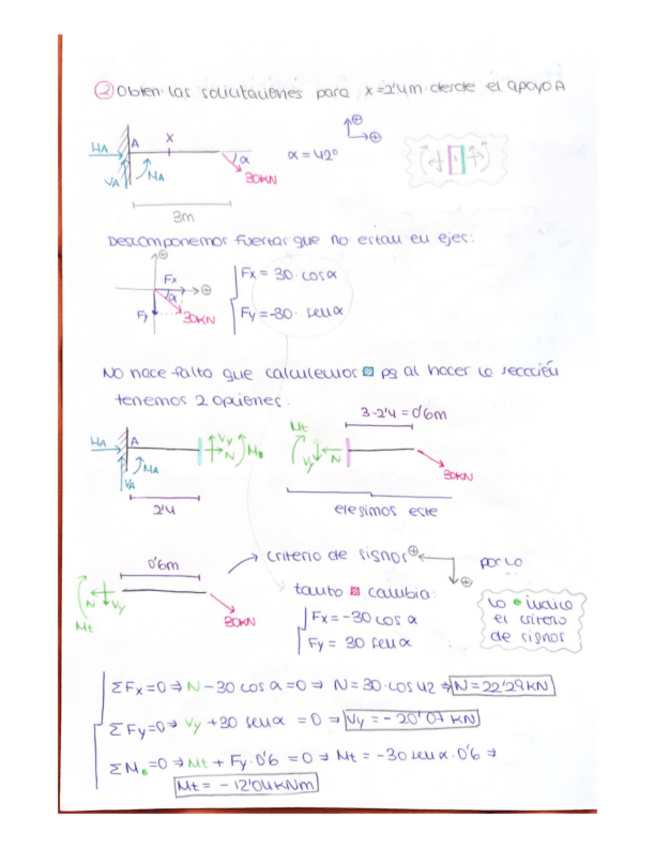 ② Obten las solicitaciones para x=2'4m desde el apoyo A
HA A x α = 42° ⊕ ⊕
VA MA α 30KN
3m
Descomponemos fuerzas que no estan en ejes:
⊕
Fx ⊕
α
Fy 30KN
Fx = 30 · cos α
Fy = -30 · sen α
No hace falta que calculemos pq al hacer la sección
tenemos 2 opciones.
HA A Vy N M
VA MA
2'4
Mt Vy N
3-2'4 = 0'6m
30KN
elegimos este
0'6m
N Vy Mt 30KN
criterio de signos ⊕ ⊕ por lo
tanto cambia:
Fx = -30 cos α
Fy = 30 sen α
lo indica
el criterio
de signos
ΣFx=0 ⇒ N-30 cos α =0 ⇒ N=30·cos 42 ⇒ N=22'29KN
ΣFy=0 ⇒ Vy +30 sen α = 0 ⇒ Vy = -20'07 KN
ΣM=0 ⇒ Mt + Fy·0'6 = 0 ⇒ Mt = -30 sen α·0'6 ⇒
Mt = -12'04KNm